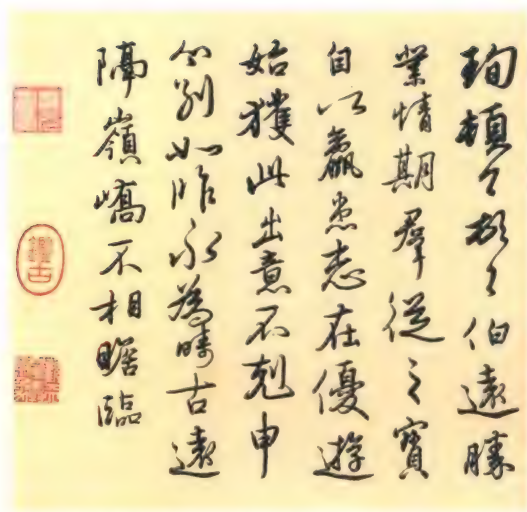 珣頓々首々伯遠勝
業情期羣從之寶
自以羸患志在優遊
始獲此出意不剋申
分別如昨永為疇古遠
隔嶺嶠不相瞻臨
鑑古